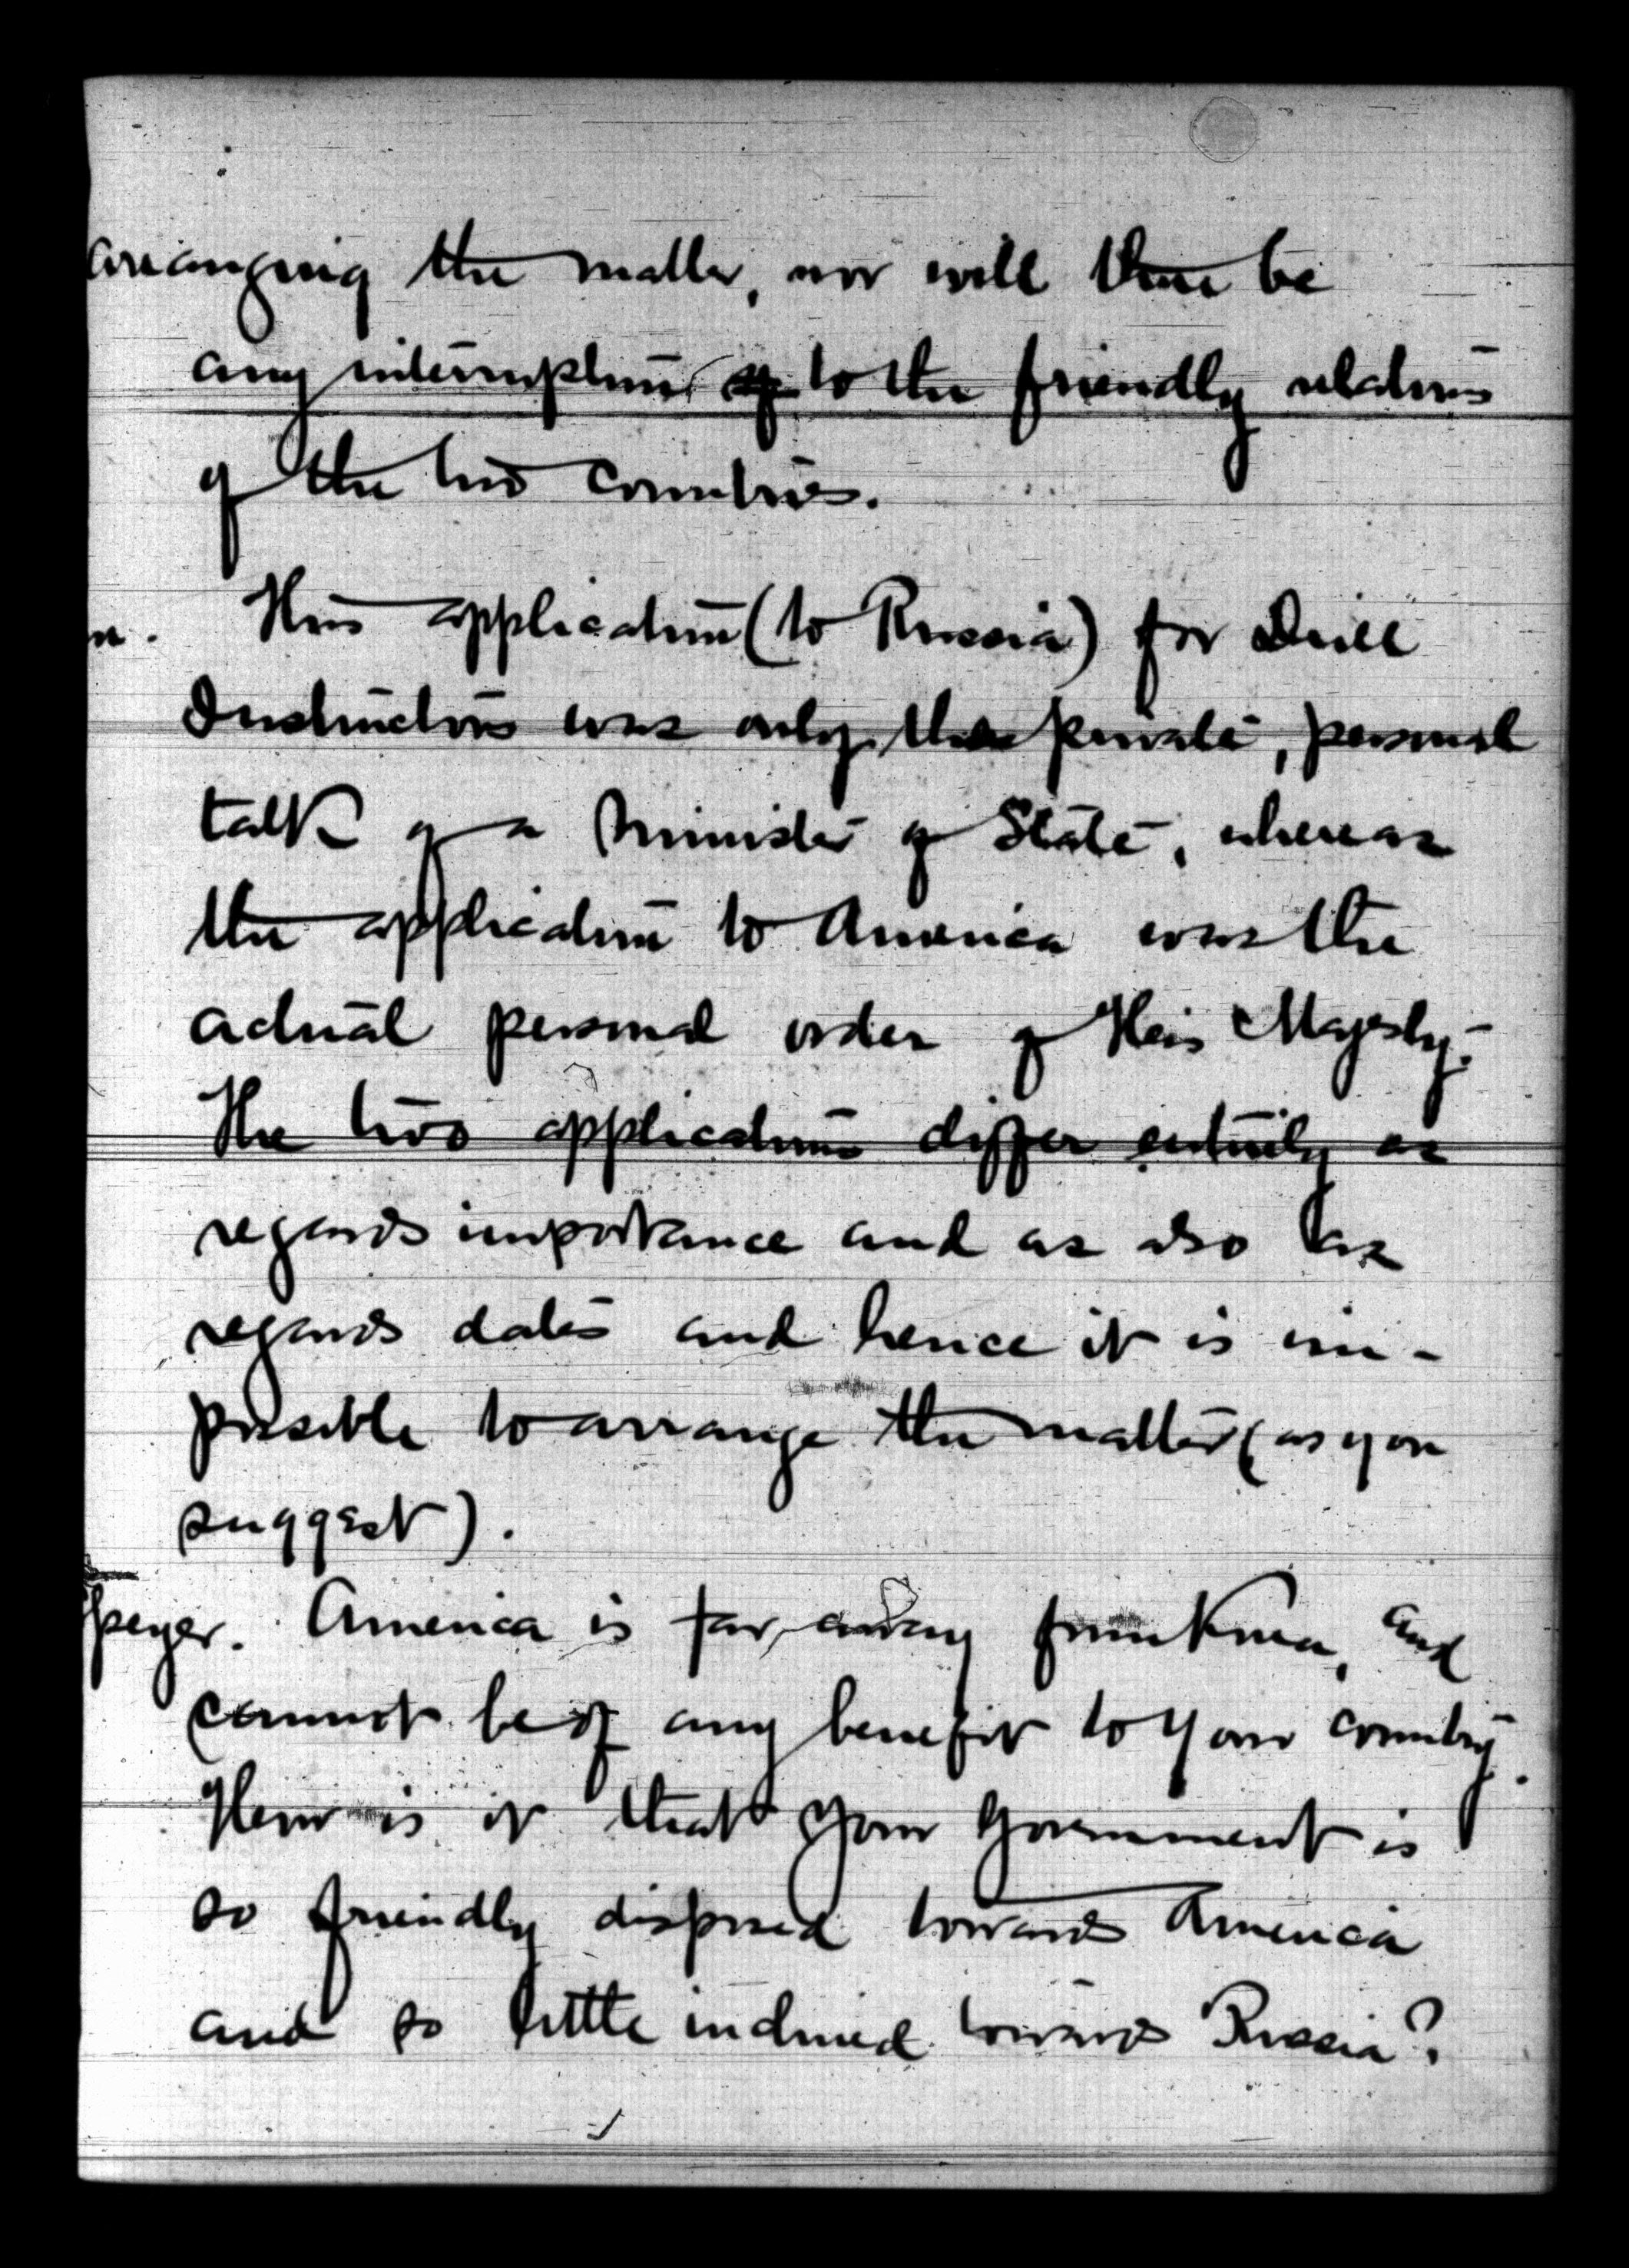 arranging the matter, nor will there be
any interruption to the friendly relations
of the two countries.
n. This application (to Russia) for Drill
Instructors was only the private, personal
talk of a Minister of State, whereas
the application to America was the
actual personal order of His Majesty.
The two applications differ entirely as
regards importance and as also as
regards dates and hence it is im-
possible to arrange the matter (as you
suggest).
Speyer. America is far away from Korea, and
cannot be of any benefit to your country.
How is it that your Government is
so friendly disposed towards America
and so little inclined towards Russia?